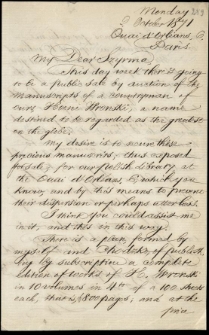 Monday
2 October 1871
Quai d'Orléans, 6,
Paris.
My Dear Szyrma,
This day week there is going
to be a public sale by auction of the
manuscripts of a
ours, Hoene Wronski, a name
destined to be regarded as the greatest
on the globe.
My desire is to secure these
precious manuscripts, thus exposed
for sale, for our Polish Library at
the Quai d'Orléans, 6, which you
know, and by this means to prevent
their dispersion or perhaps utter loss.
I trust you could assist me
in it, and this in this way.
There is a plan formed by
myself and
ing by subscription a complete
edition of works of H. Wronski
in 10 volumes in 4to of a 100 sheets
each, that is, 800 pages, and at the
price